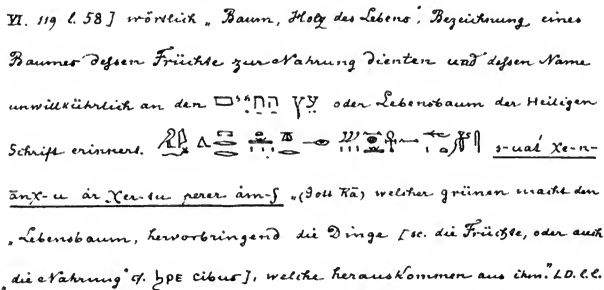 VI. 119 l. 58] wörtlich „Baum, Holz des Lebens“, Bezeichnung eines
Baumes dessen Früchte zur Nahrung dienten und dessen Name
unwillkührlich an den עץ החיים oder Lebensbaum der Heiligen
Schrift erinnert. s-uaś χe-n-
ānχ-u ȧr χer-tu perer ȧm-f „(Gott Rā) welcher grünen macht den
„Lebensbaum, hervorbringend die Dinge [sc. die Früchte, oder auch
„die Nahrung“ cf. ϧⲣⲉ cibus], welche herauskommen aus ihm.“ LD. l.l.